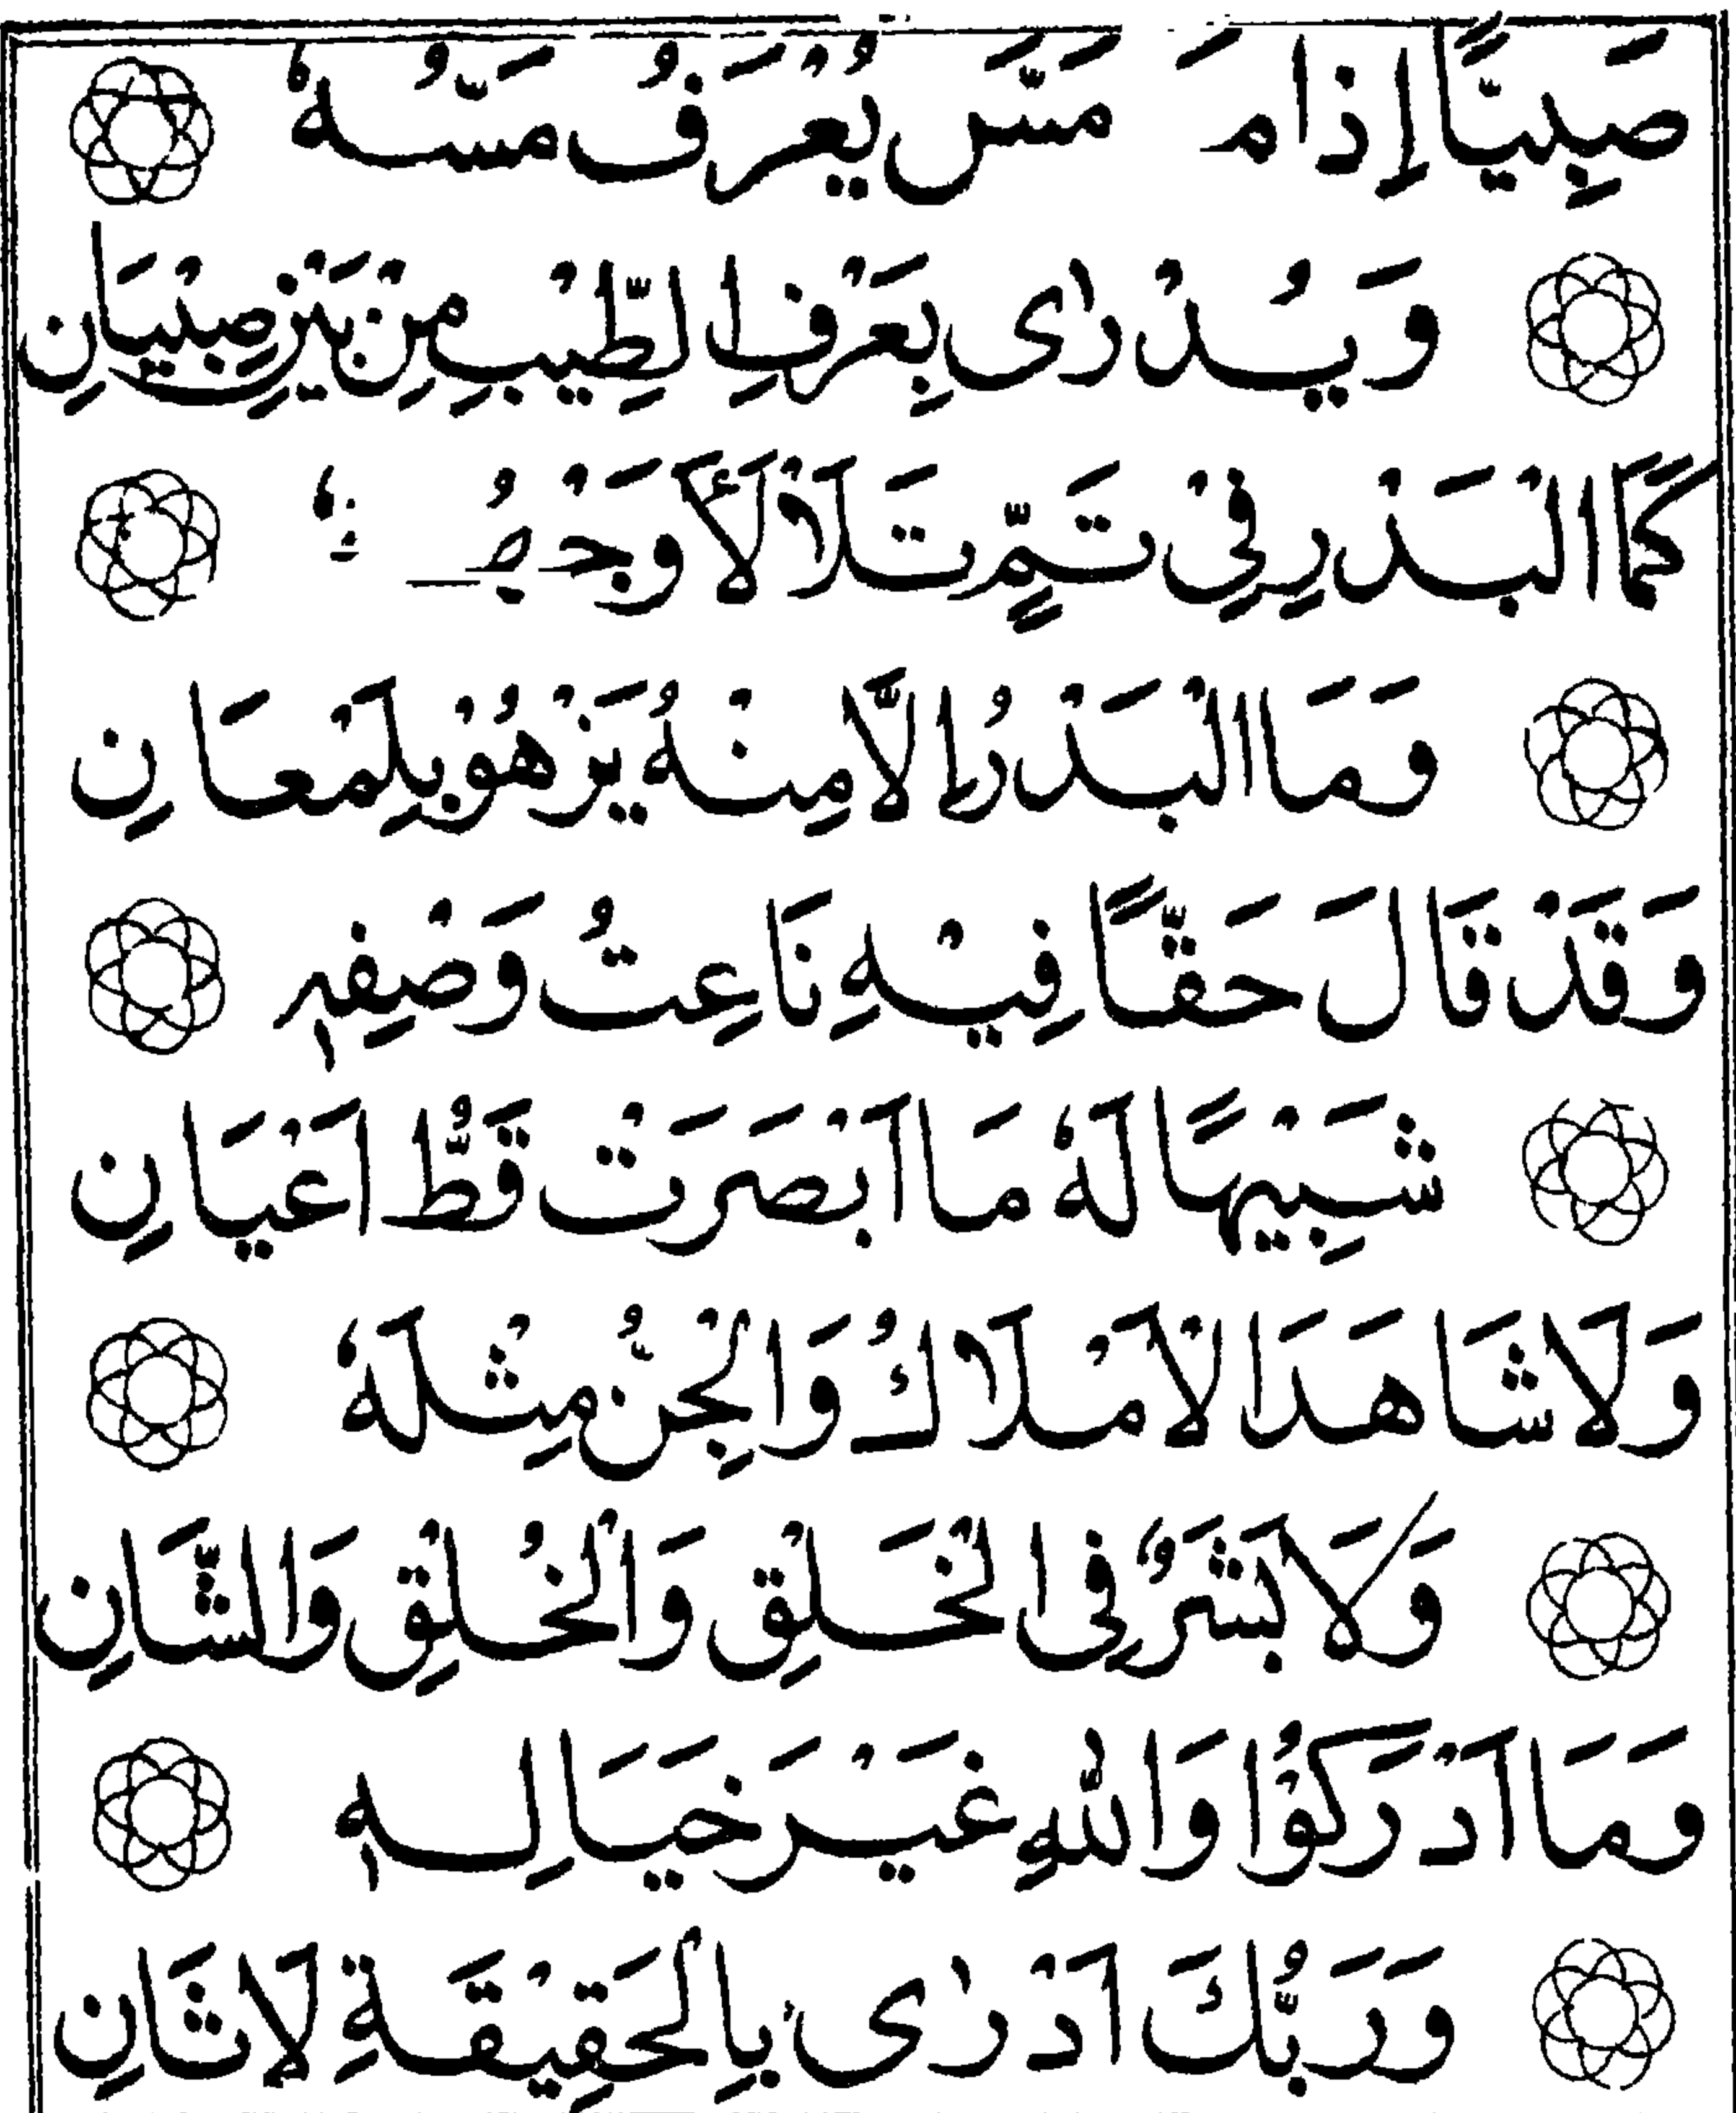 صَبِيًّا إِذَا مَا مَسَّ يُعْرَفُ مَسُّهُ
وَيُدْرٰى بِعَرْفِ الطِّيْبِ مِنْ بَيْنِ صِبْيَانِ
كَمَا الْبَدْرِ فِيْ تَمٍّ تَلَأْلَأَ وَجْهُهُ
وَمَا الْبَدْرُ اِلَّا مِنْهُ يَزْهُوْ بِلَمْعَانِ
وَقَدْ قَالَ حَقًّا فِيْهِ نَاعِتُ وَصْفِهٖ
شَبِيْهًا لَهٗ مَا اَبْصَرَتْ قَطُّ اَعْيَانِ
وَلَا شَاهَدَ الْاَمْلَاكُ وَالْجِنُّ مِثْلَهٗ
وَلَا بَشَرٌ فِى الْخَلْقِ وَالْخُلْقِ وَالشَّانِ
وَمَا اَدْرَكُوْا وَاللّٰهِ غَيْرَ خَيَالِهٖ
وَرَبُّكَ اَدْرٰى بِالْحَقِيْقَةِ لَاثَانِ